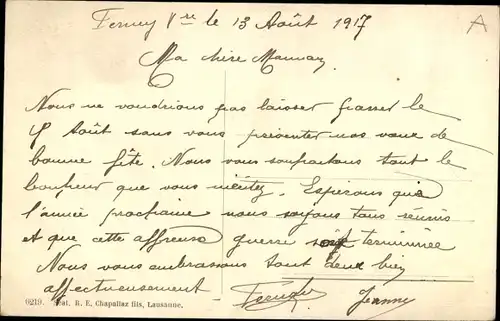 Ferney Vre le 13 Août 1917
Ma chère Maman,
Nous ne voudrions pas laisser passer le
Août sans vous présenter nos vœux de
bonne fête. Nous vous souhaitons tout le
bonheur que vous méritez. Espérons que
l'année prochaine nous soyons tous réunis
et que cette affreuse guerre soit terminée
Nous vous embrassons tout deux bien
affectueusement
Jeanne
6219. Neat. R. E. Chapallaz fils, Lausanne.
A